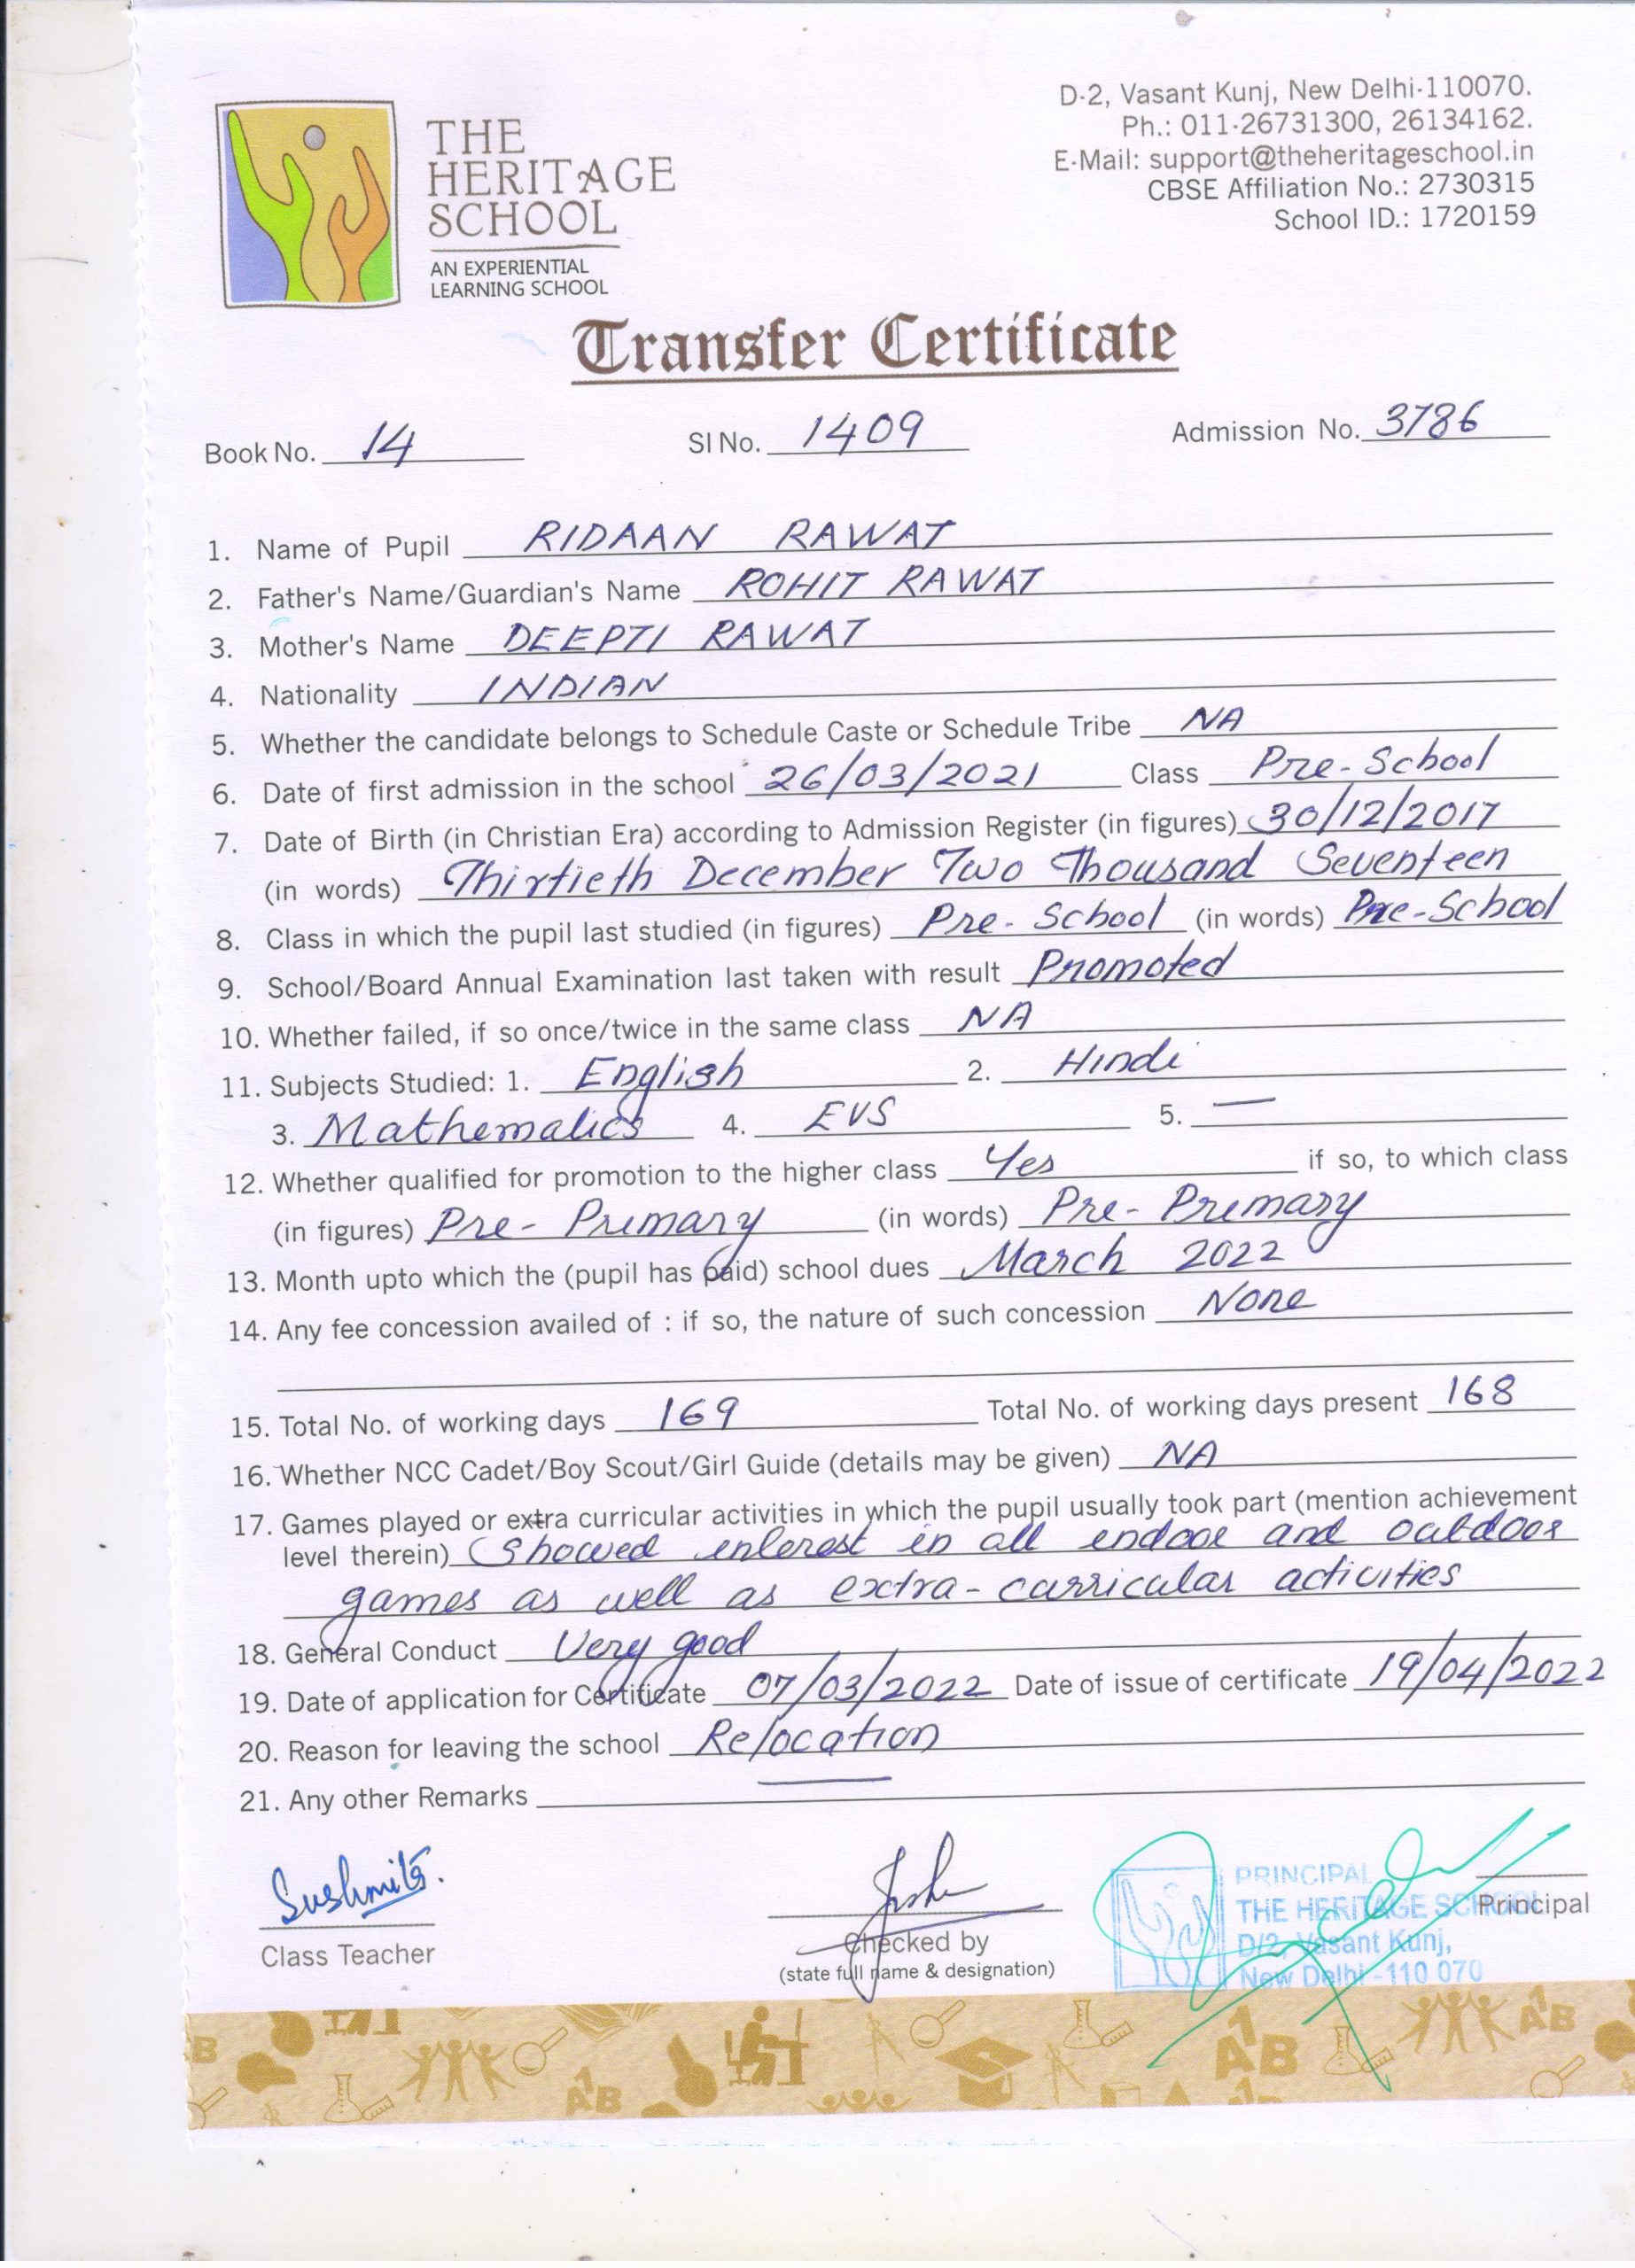 THE
HERITAGE
SCHOOL
AN EXPERIENTIAL
LEARNING SCHOOL
D-2, Vasant Kunj, New Delhi-110070.
Ph.: 011-26731300, 26134162.
E-Mail: support@theheritageschool.in
CBSE Affiliation No.: 2730315
School ID.: 1720159
Transfer Certificate
Book No. 14 Sl No. 1409 Admission No. 3786
1. Name of Pupil RIDAAN RAWAT
2. Father's Name/Guardian's Name ROHIT RAWAT
3. Mother's Name DEEPTI RAWAT
4. Nationality INDIAN
5. Whether the candidate belongs to Schedule Caste or Schedule Tribe NA
6. Date of first admission in the school 26/03/2021 Class Pre-School
7. Date of Birth (in Christian Era) according to Admission Register (in figures) 30/12/2017
(in words) Thirtieth December Two Thousand Seventeen
8. Class in which the pupil last studied (in figures) Pre-School (in words) Pre-School
9. School/Board Annual Examination last taken with result Promoted
10. Whether failed, if so once/twice in the same class NA
11. Subjects Studied: 1. English 2. Hindi
3. Mathematics 4. EVS 5. —
12. Whether qualified for promotion to the higher class Yes if so, to which class
(in figures) Pre-Primary (in words) Pre-Primary
13. Month upto which the (pupil has paid) school dues March 2022
14. Any fee concession availed of : if so, the nature of such concession None
15. Total No. of working days 169 Total No. of working days present 168
16. Whether NCC Cadet/Boy Scout/Girl Guide (details may be given) NA
17. Games played or extra curricular activities in which the pupil usually took part (mention achievement
level therein) Showed interest in all indoor and outdoor
games as well as extra-curricular activities
18. General Conduct Very good
19. Date of application for Certificate 07/03/2022 Date of issue of certificate 19/04/2022
20. Reason for leaving the school Relocation
21. Any other Remarks —
Sushmita.
Class Teacher
Checked by
(state full name & designation)
PRINCIPAL
THE HERITAGE SCHOOL
D/2, Vasant Kunj,
New Delhi-110 070
Principal